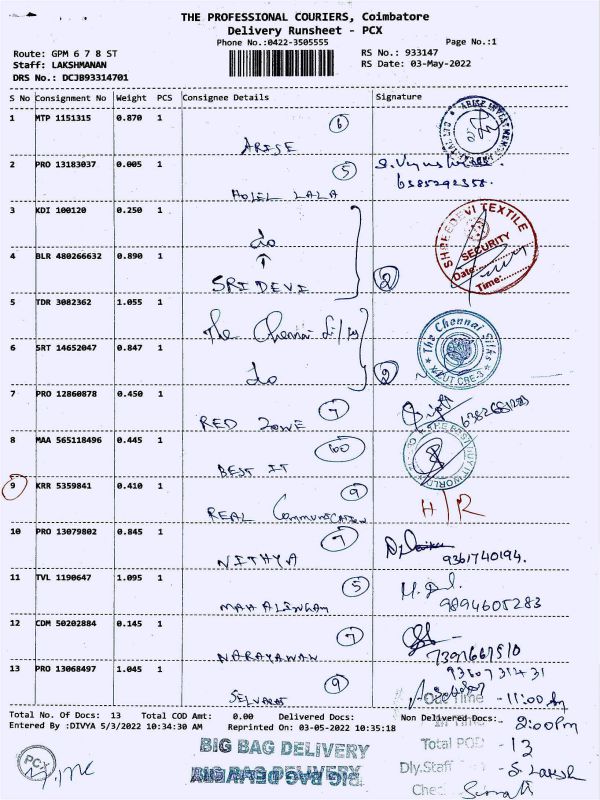 THE PROFESSIONAL COURIERS, Coimbatore
Delivery Runsheet - PCX
Phone No.:0422-3505555
Page No.:1
Route: GPM 6 7 8 ST
RS No.: 933147
Staff: LAKSHMANAN
RS Date: 03-May-2022
DRS No.: DCJB93314701
S No Consignment No Weight PCS Consignee Details Signature
1 MTP 1151315 0.870 1
6
ARISE
2 PRO 13183037 0.005 1
5
HOTEL LALA
6385292358.
3 KDI 100120 0.250 1
do
SHREEDEVI TEXTILE
SECURITY
Date:
Time:
4 BLR 480266632 0.890 1
SRI DEVI
2
5 TDR 3082362 1.055 1
The Chennai Silks
The Chennai Silks
6 SRT 14652047 0.847 1
do
2
7 PRO 12860878 0.450 1
7
RED ZONE
8 MAA 565118496 0.445 1
60
BEST IT
9 KRR 5359841 0.410 1
9
REAL Communication
H/R
10 PRO 13079802 0.845 1
7
NITHYA
9361740194.
11 TVL 1190647 1.095 1
5
MAHALINGAM
9894605283
12 CDM 50202884 0.145 1
7
NARAYANAN
7397667510
13 PRO 13068497 1.045 1
9360731431
9
SELVARAJ
Time - 11:00 Am
Total No. Of Docs: 13 Total COD Amt: 0.00 Delivered Docs: Non Delivered Docs:
2:00Pm
Entered By :DIVYA 5/3/2022 10:34:30 AM Reprinted On: 03-05-2022 10:35:18
BIG BAG DELIVERY
Total POD - 13
PCX
BIG BAG DELIVERY
Dly.Staff - S. Laksh